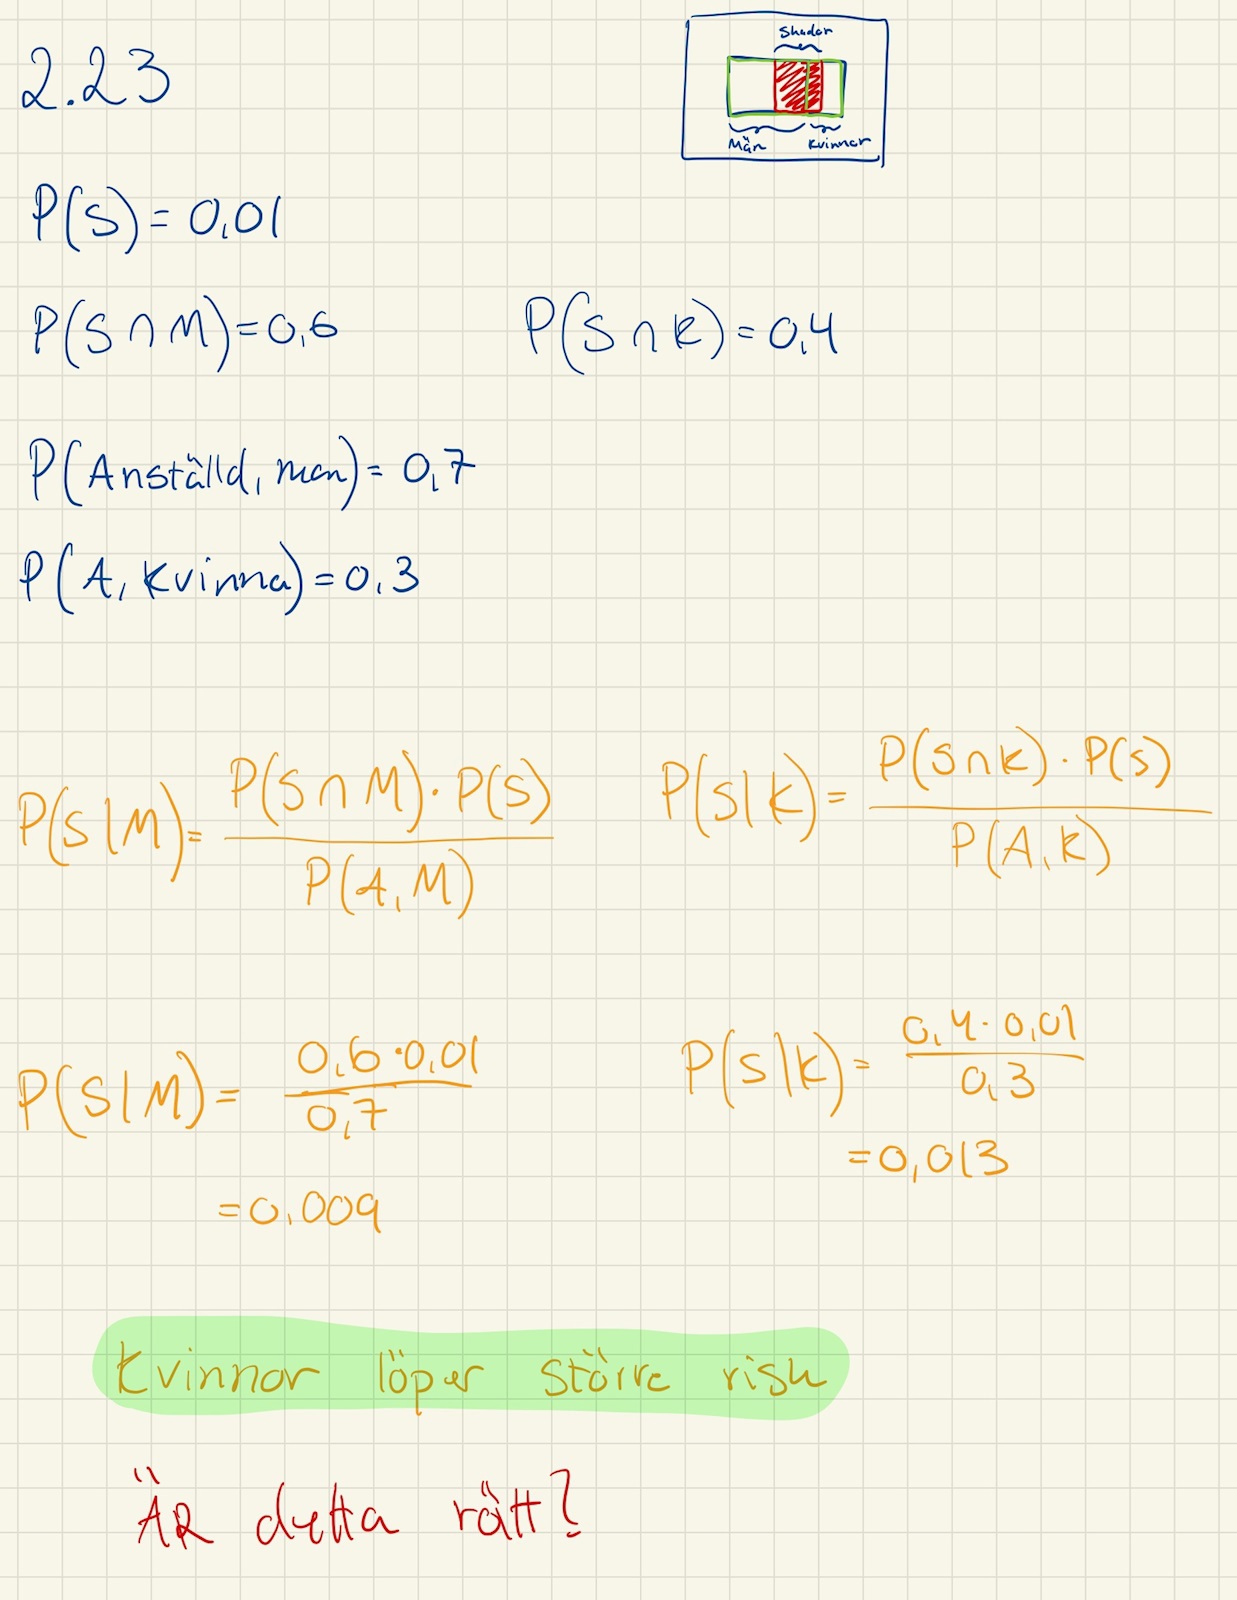 2.23
Skador
Män Kvinnor
P(S) = 0,01
P(S ∩ M) = 0,6 P(S ∩ K) = 0,4
P(Anställd, man) = 0,7
P(A, Kvinna) = 0,3
P(S|M) = P(S ∩ M) · P(S) / P(A, M) P(S|K) = P(S ∩ K) · P(S) / P(A, K)
P(S|M) = 0,6 · 0,01 / 0,7 P(S|K) = 0,4 · 0,01 / 0,3
= 0,013
= 0,009
Kvinnor löper större risk
ÄR detta rätt?